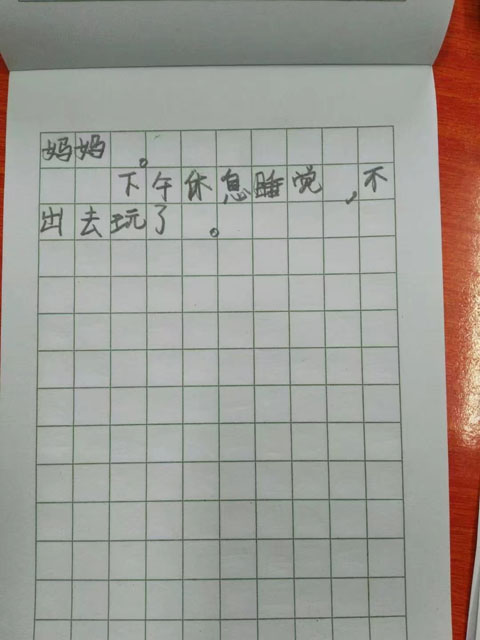 妈妈。
下午休息睡觉,不
出去玩了。